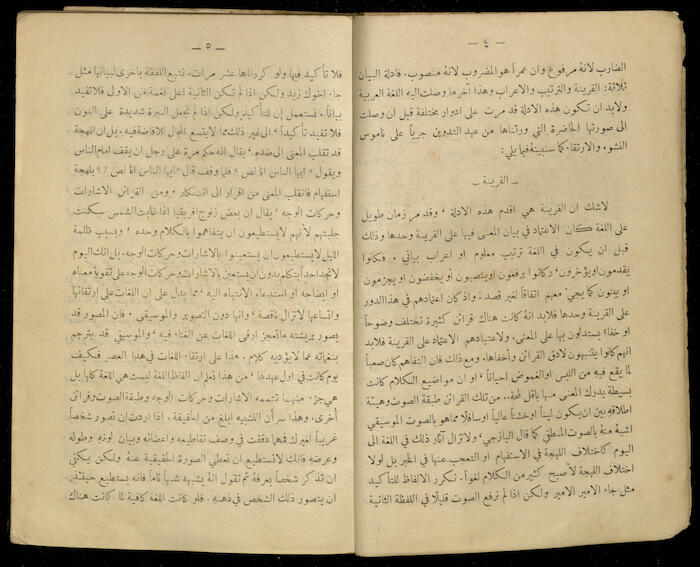 — ٤ —
الضارب لانهُ مرفوع وان عمراً هو المضروب لانهُ منصوب. فادلة البيان
ثلاثة: القرينة والترتيب والاعراب وهذا آخر ما وصلت اليه اللغة العربية
ولابد ان تكون هذه الادلة قد مرت على ادوار مختلفة قبل ان وصلت
الى صورتها الحاضرة التي ورثناها من عهد التدوين جرياً على ناموس
النشوء والارتقاء كما سنبينهُ فيما يلي:
— القرينة —
لاشك ان القرينة هي اقدم هذه الادلة ، وقد مر زمان طويل
على اللغة كان الاعتماد في بيان المعنى فيها على القرينة وحدها وذلك
قبل ان يكون في اللغة ترتيب معلوم او اعراب بياني . فكانوا
يقدمون او يؤخرون، وكانوا يرفعون او ينصبون أو يخفضون او يجزمون
او يبنون كما يجيء معهم اتفاقاً لغير قصد. واذ كان اعتمادهم في هذا الدور
على القرينة وحدها فلابد انهُ كانت هناك قرائن كثيرة تختلف وضوحاً
او خفاءً يستدلون بها على المعنى، ولاعتيادهم الاعتماد على القرينة فلابد
انهم كانوا يتنبهون لادق القرائن وأخفاها، ومع ذلك فان التفاهم كان صعباً
لما يقع فيه من اللبس او الغموض احياناً ، او ان مواضيع الكلام كانت
بسيطة يدرك المعنى منها باقل لمحة. . من تلك القرائن طبقة الصوت وهيئة
اطلاقه بين ان يكون ليناً او خشناً عالياً او سافلاً مما هو بالصوت الموسيقي
اشبهُ منهُ بالصوت المنطقي كما قال اليازجي، ولا تزال آثار ذلك في اللغة الى
اليوم كاختلاف اللهجة في الاستفهام او التعجب عنها في الخبر بل لولا
اختلاف اللهجة لأصبح كثير من الكلام لغواً. نكرر الالفاظ للتأكيد
مثل جاء الامير الامير ولكن اذا لم نرفع الصوت قليلاً في اللفظة الثانية
— ٥ —
فلا تأكيد فيها ولو كررناها عشر مرات. نتبع اللفظة باخرى لبيانها مثل
جاء اخوك زيد ولكن اذا لم تكن الثانية اعلى نغمة من الاولى فلا تفيد
بياناً. نستعمل إن للتأكيد ولكن اذا لم نجعل النبرة شديدة على النون
فلا تفيد تأكيداً، الى غير ذلك مما لا يتسع المجال للافاضة فيه. بل ان اللهجة
قد تقلب المعنى الى ضده ، يقال انه حكم مرة على رجل ان يقف امام الناس
ويقول «ايها الناس انا لص» فلما وقف قال «ايها الناس انا لص ؟» بلهجة
استفهام فانقلب المعنى من اقرار الى انكار . ومن القرائن الاشارات
وحركات الوجه ، يقال ان بعض زنوج افريقيا اذا غابت الشمس سكنت
جلبتهم لأنهم لا يستطيعون ان يتفاهموا بالكلام وحده ، وبسبب ظلمة
الليل لا يستطيعون ان يستعينوا بالاشارات وحركات الوجه. بل انك اليوم
لا تجد احداً يتكلم بدون ان يستعين بالاشارات وحركات الوجه على تقوية معناه
او ايضاحه او استدعاء الانتباه اليه ، مما يدل على ان اللغات على ارتقائها
واتساعها لا تزال ناقصة ، وانها دون التصوير والموسيقي . فان المصور قد
يصور بريشته ما تعجز ارقى اللغات عن الغناء فيه ، والموسيقي قد يترجم
بنغماته عما لا يؤديه كلام . هذا على ارتقاء اللغات في هذا العصر فكيف
يوم كانت في اول عهدها ، من هذا تعلم ان الفاظ اللغة ليست هي اللغة كلها بل
هي جزء منها تتممه الاشارات وحركات الوجه وطبقة الصوت وقرائن
أخرى. وهذا سر أن التشبيه ابلغ من الحقيقة، اذا اردت ان تصور شخصاً
غريباً لغيرك فمهما دققت في وصف تقاطيعه واعضائه وبيان لونه وطوله
وعرضه فانك لا تستطيع ان تعطي الصورة الحقيقية عنهُ ولكن يكفي
ان تذكر شخصاً يعرفهُ ثم تقول انهُ يشبهه شبهاً تاماً فانه يستطيع حينئذٍ
ان يتصور ذلك الشخص في ذهنه . فلو كانت اللغة كافية لما كانت هناك